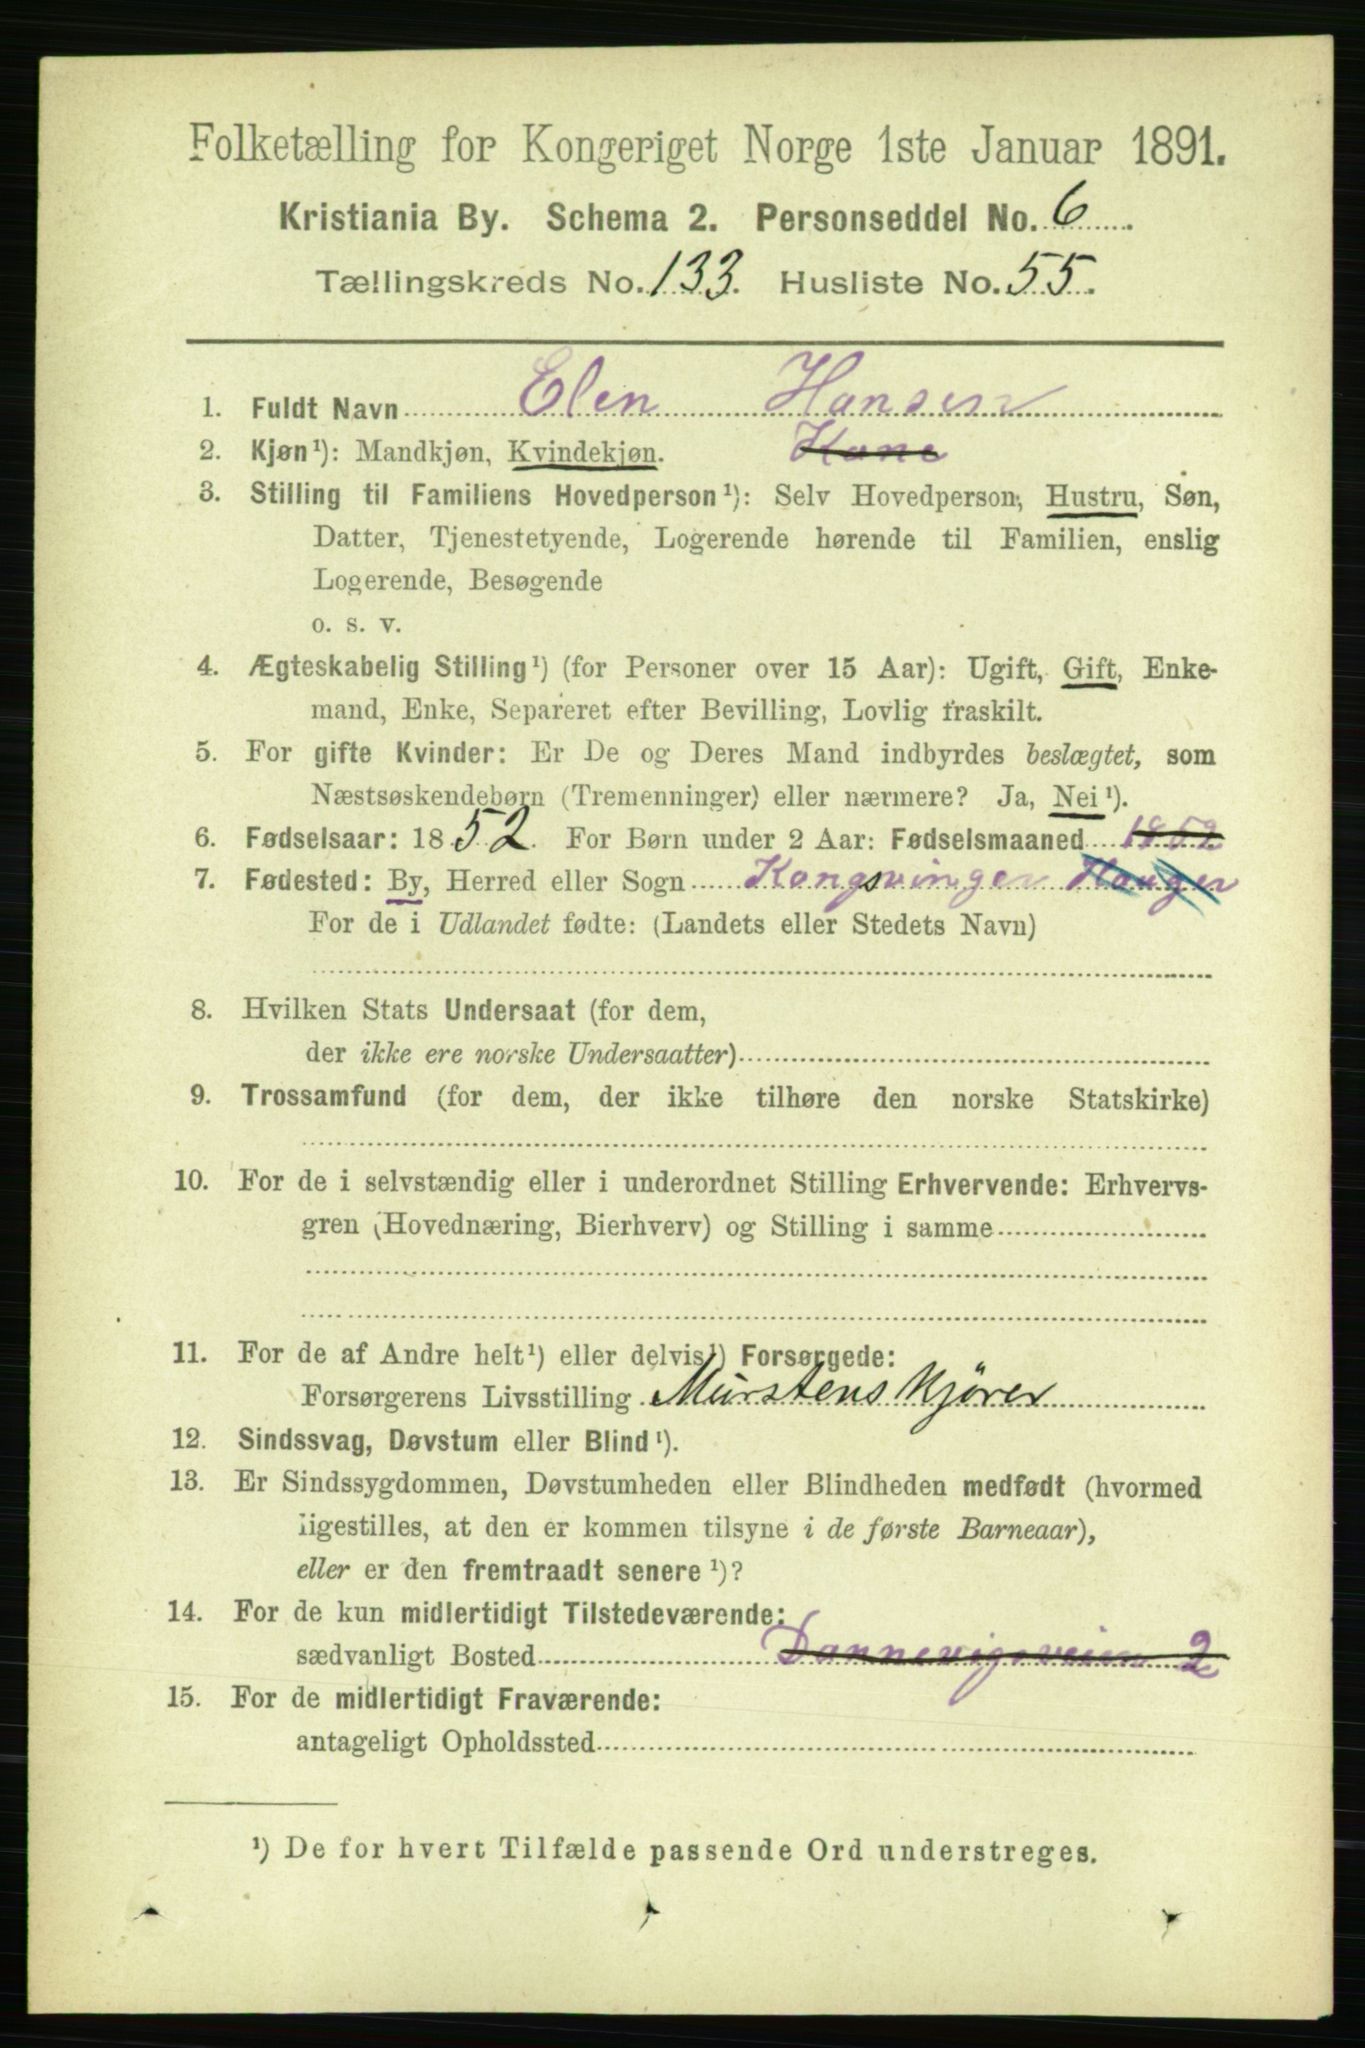 Folketælling for Kongeriget Norge 1ste Januar 1891.
Kristiania By. Schema 2. Personseddel No. 6
Tællingskreds No. 133. Husliste No. 55.
1. Fuldt Navn Elen Hansen
2. Kjøn¹): Mandkjøn, Kvindekjøn. Kone
3. Stilling til Familiens Hovedperson¹): Selv Hovedperson, Hustru, Søn,
Datter, Tjenestetyende, Logerende hørende til Familien, enslig
Logerende, Besøgende
o. s. v.
4. Ægteskabelig Stilling¹) (for Personer over 15 Aar): Ugift, Gift, Enke-
mand, Enke, Separeret efter Bevilling, Lovlig fraskilt.
5. For gifte Kvinder: Er De og Deres Mand indbyrdes beslægtet, som
Næstsøskendebørn (Tremenninger) eller nærmere? Ja, Nei¹).
6. Fødselsaar: 1852. For Børn under 2 Aar: Fødselsmaaned 1852
7. Fødested: By, Herred eller Sogn Kongsvinger Houger
For de i Udlandet fødte: (Landets eller Stedets Navn)
8. Hvilken Stats Undersaat (for dem,
der ikke ere norske Undersaatter)
9. Trossamfund (for dem, der ikke tilhøre den norske Statskirke)
10. For de i selvstændig eller i underordnet Stilling Erhvervende: Erhvervs-
gren (Hovednæring, Bierhverv) og Stilling i samme
11. For de af Andre helt¹) eller delvis¹) Forsørgede:
Forsørgerens Livsstilling Murstenskjörer
12. Sindssvag, Døvstum eller Blind¹).
13. Er Sindssygdommen, Døvstumheden eller Blindheden medfødt (hvormed
ligestilles, at den er kommen tilsyne i de første Barneaar),
eller er den fremtraadt senere¹)?
14. For de kun midlertidigt Tilstedeværende:
sædvanligt Bosted Dannevigsveien 2
15. For de midlertidigt Fraværende:
antageligt Opholdssted
¹) De for hvert Tilfælde passende Ord understreges.